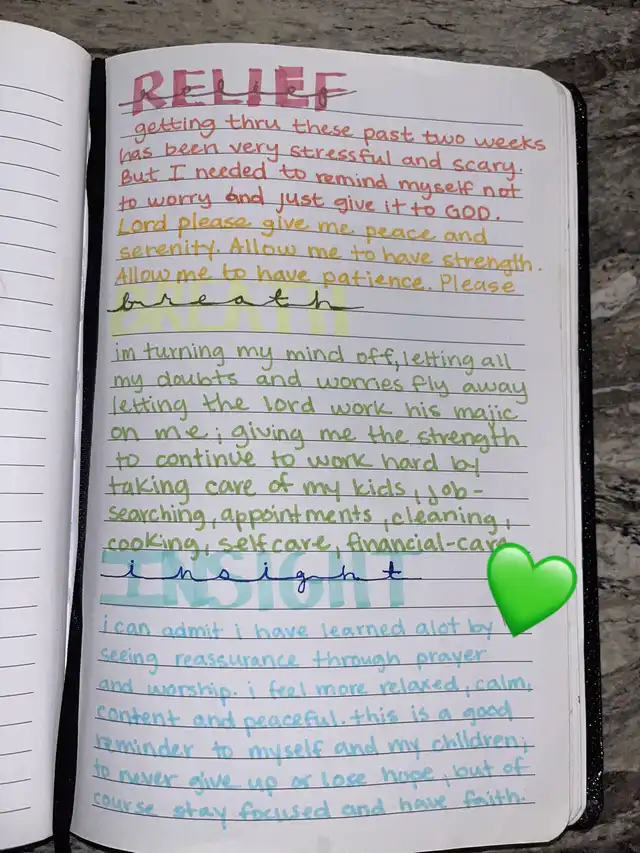 RELIEF
relief
getting thru these past two weeks
has been very stressful and scary.
But I needed to remind myself not
to worry and just give it to GOD.
Lord please give me peace and
serenity. Allow me to have strength.
Allow me to have patience. Please
BREATH
breath
im turning my mind off, letting all
my doubts and worries fly away
letting the lord work his majic
on me; giving me the strength
to continue to work hard by
taking care of my kids, job-
searching, appointments, cleaning,
cooking, selfcare, financial-care
INSIGHT
insight
i can admit i have learned alot by
seeing reassurance through prayer
and worship. i feel more relaxed, calm,
content and peaceful. this is a good
reminder to myself and my children;
to never give up or lose hope, but of
course stay focused and have faith.